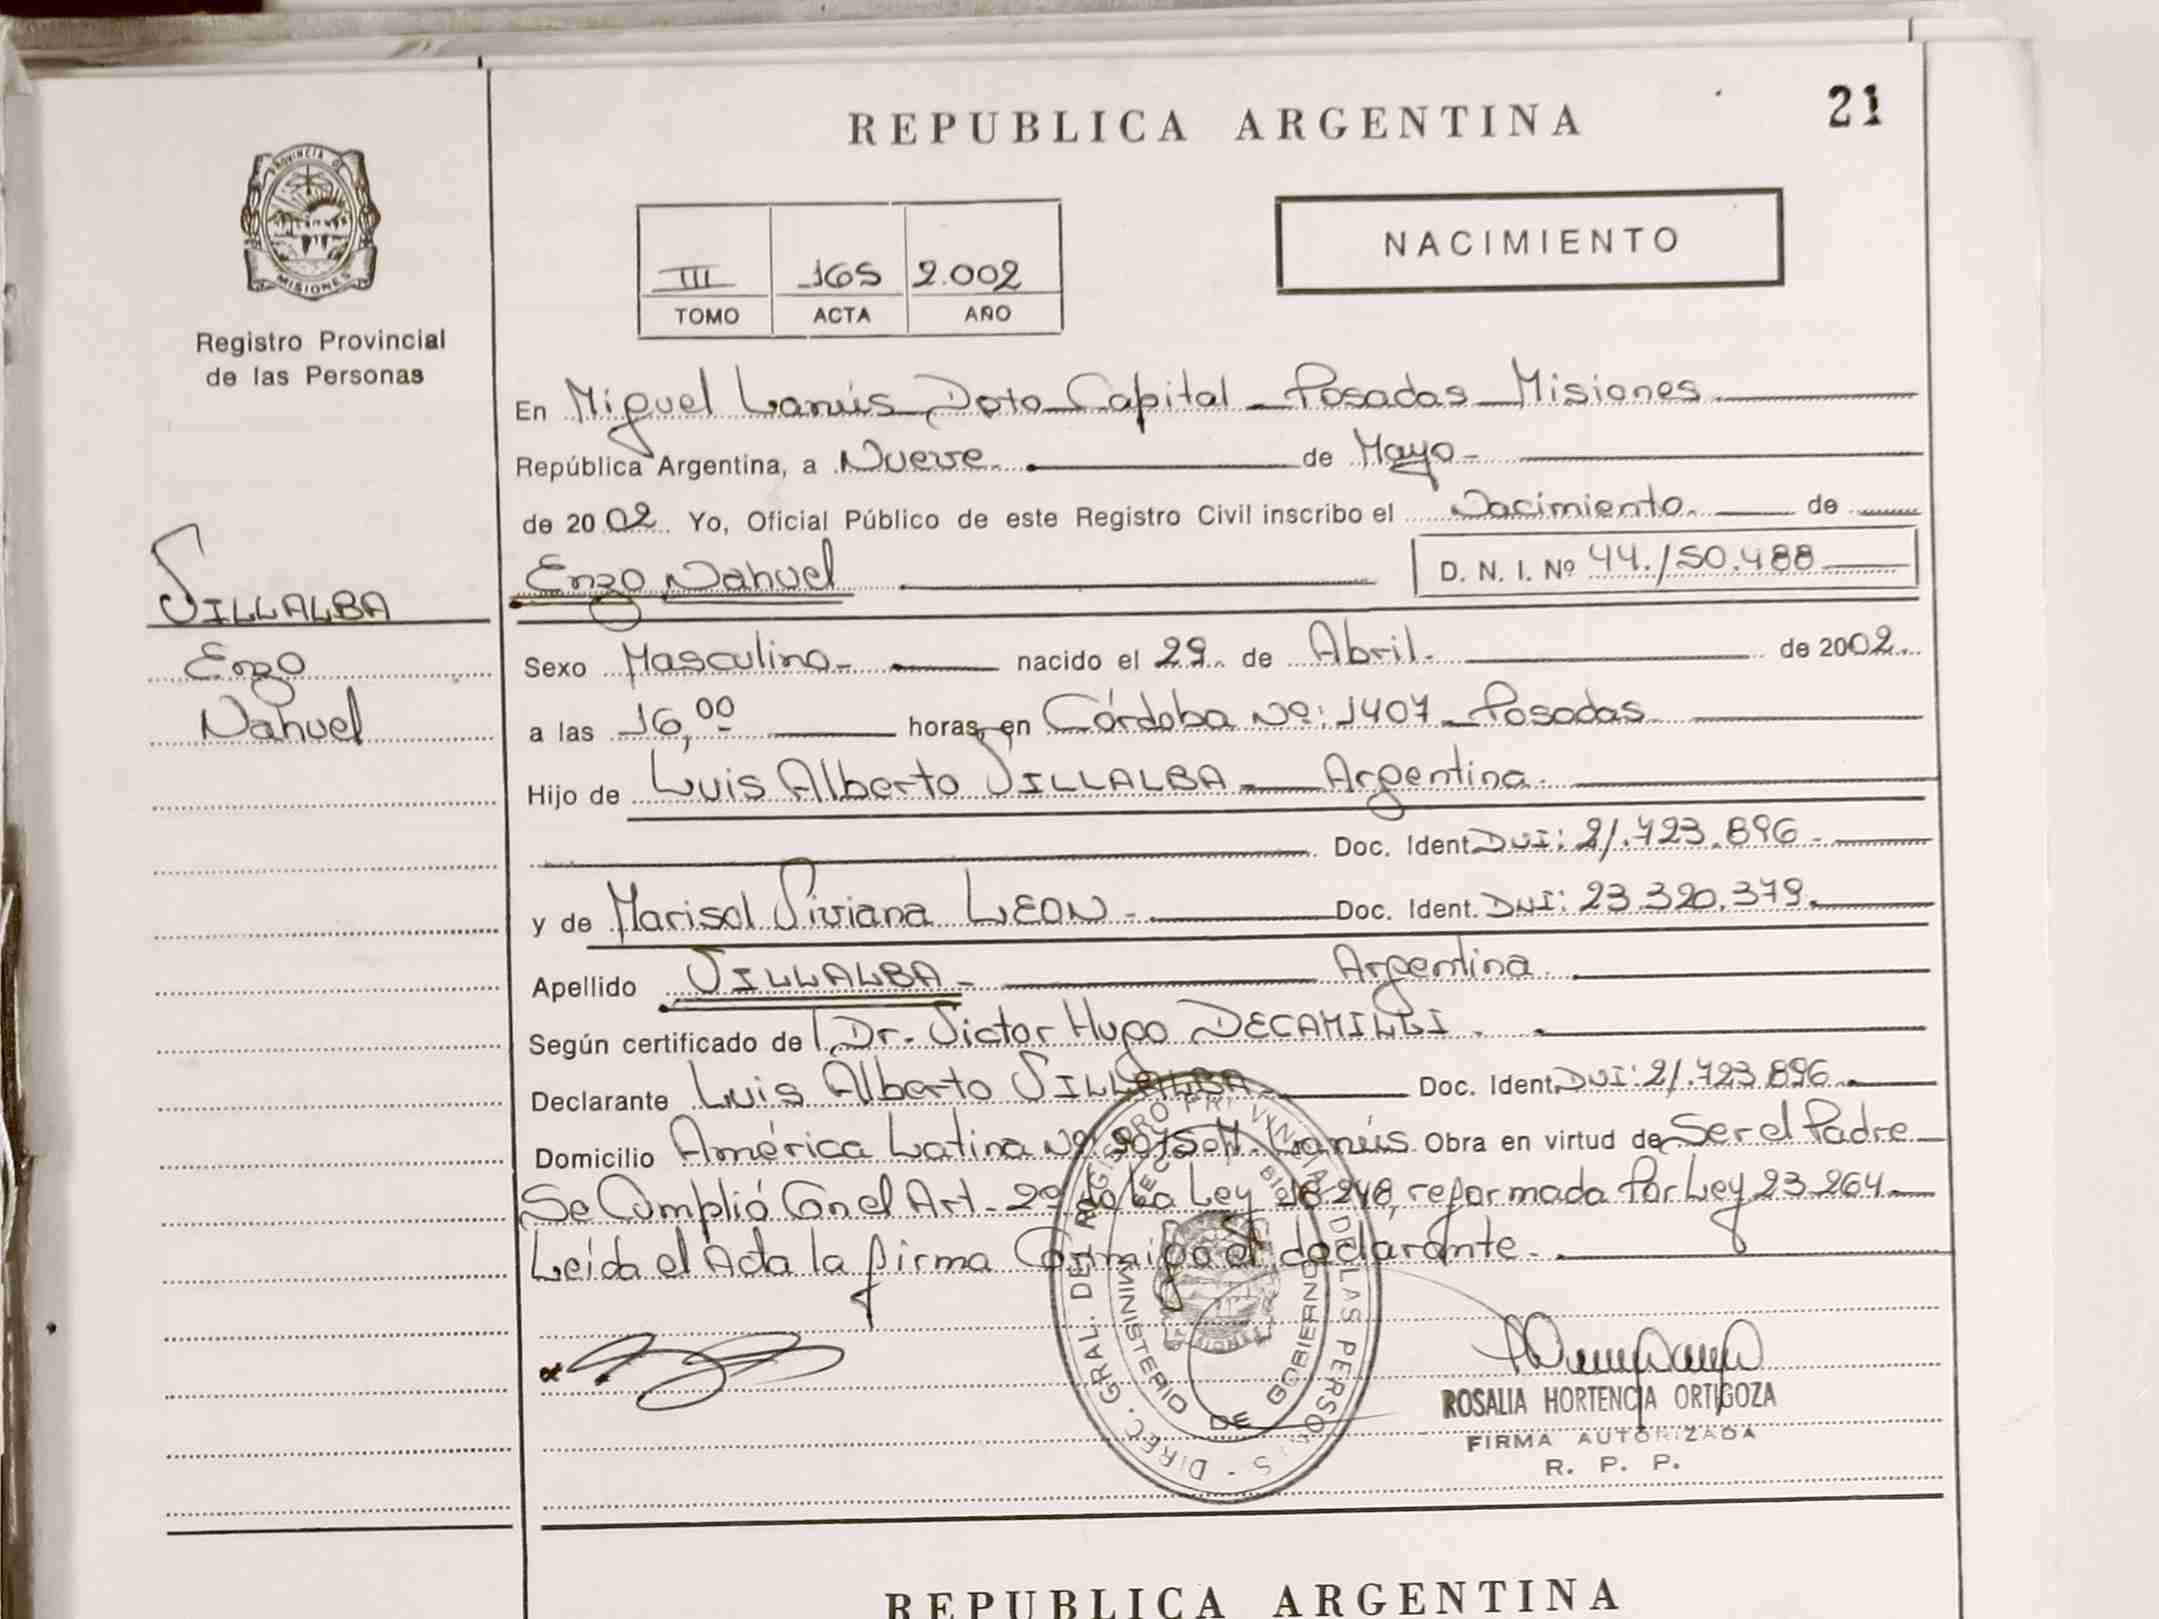 REPUBLICA ARGENTINA
21
PROVINCIA DE
MISIONES
Registro Provincial
de las Personas
III 165 2.002
TOMO ACTA AÑO
NACIMIENTO
En Miguel Lanús Dpto Capital - Posadas - Misiones
República Argentina, a Nueve. de Mayo -
de 2002. Yo, Oficial Público de este Registro Civil inscribo el Nacimiento. de
Enzo Nahuel
D. N. I. Nº 44.150.488
VILLALBA
Enzo
Nahuel
Sexo Masculino - nacido el 29. de Abril. de 2002.
a las 16,00 horas, en Córdoba Nº: 1407 - Posadas
Hijo de Luis Alberto VILLALBA - Argentina.
Doc. Ident. DNI: 21.723.896 -
y de Marisol Viviana LEON - Doc. Ident. DNI: 23.320.379.
Apellido VILLALBA - Argentina.
Según certificado de Dr. Victor Hugo DECAMILLI.
Declarante Luis Alberto VILLALBA - Doc. Ident. DNI: 21.723.896.
Domicilio América Latina Nº M. Lanús. Obra en virtud de Ser el Padre
Se Cumplió Con el Art - 2º de La Ley 18.248, reformada Por Ley 23.264
Leída el Acta la firma Conmigo el declarante.
DIREC. GRAL. DEL REGISTRO PROVINCIAL DE LAS PERSONAS
MINISTERIO DE GOBIERNO
MISIONES
ROSALIA HORTENCIA ORTIGOZA
FIRMA AUTORIZADA
R. P. P.
REPUBLICA ARGENTINA